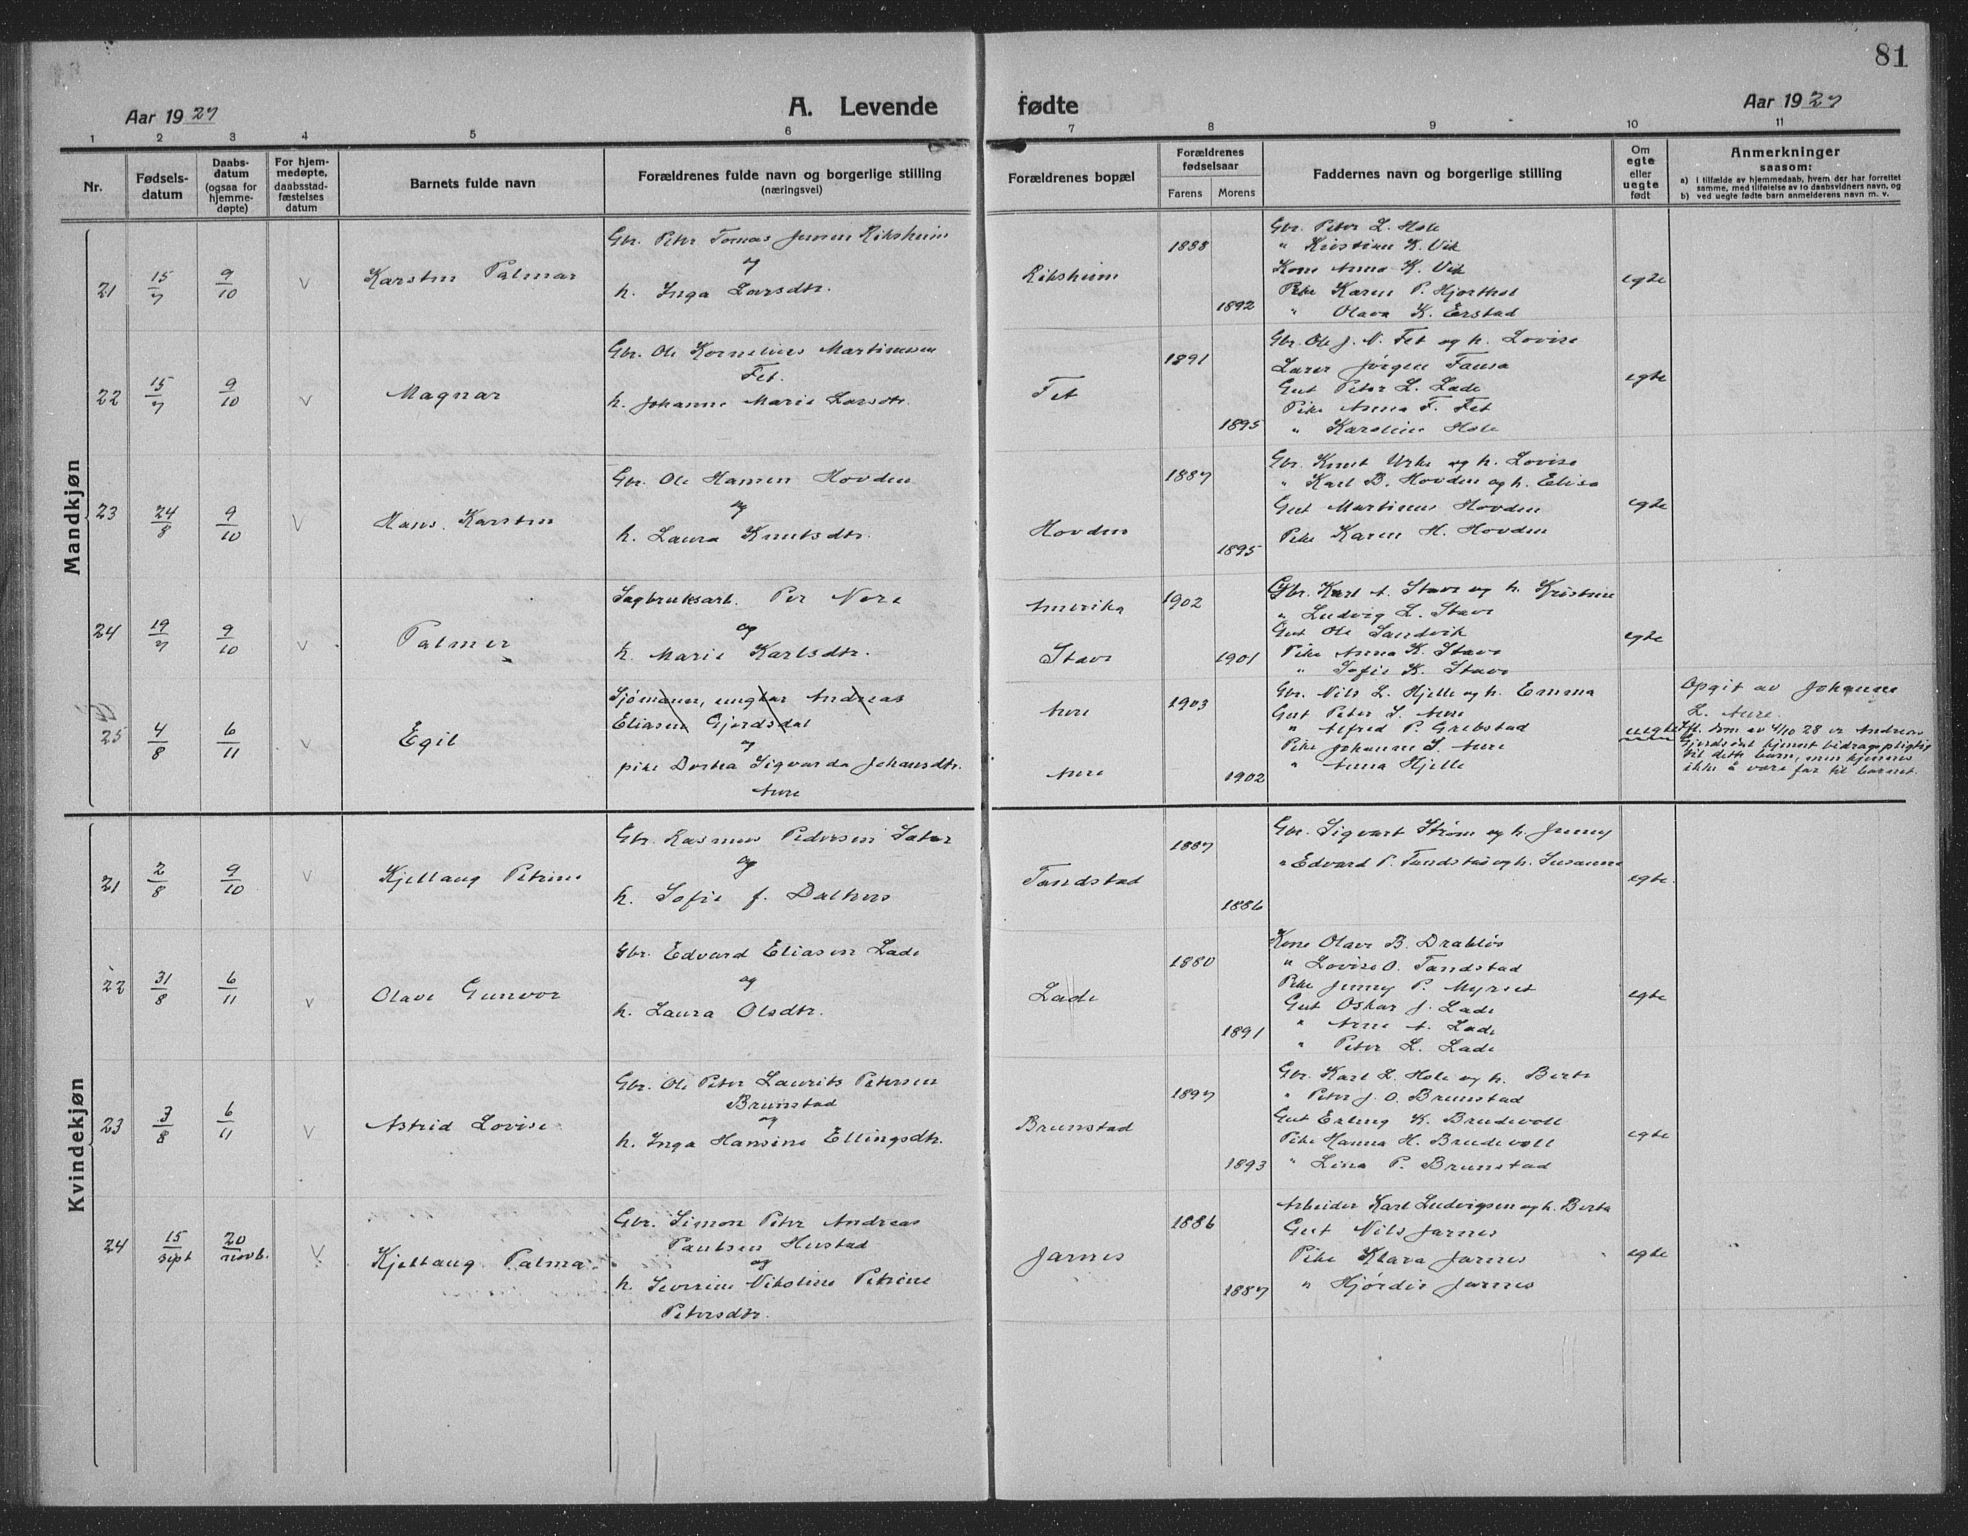 81
Aar 1927
A. Levende fødte
Aar 1927
1 2 3 4 5 6 7 8 9 10 11
Nr.
Fødsels-
datum
Daabs-
datum
(ogsaa for
hjemme-
døpte)
For hjem-
medøpte,
daabsstad-
fæstelses
datum
Barnets fulde navn
Forældrenes fulde navn og borgerlige stilling
(næringsvei)
Forældrenes bopæl
Forældrenes
fødselsaar
Farens Morens
Faddernes navn og borgerlige stilling
Om
egte
eller
uegte
født
Anmerkninger
saasom:
a) I tilfælde av hjemmedaab, hvem der har forrettet
samme, med tilføielse av to daabsvidners navn, og
b) ved uegte fødte barn anmelderens navn m. v.
Mandkjøn
21 15/7 9/10 v Karsten Palmar
Gbr. Peter Tomas Jensen Riksheim
og
h. Inga Larsdtr.
Riksheim 1888 1892
Gbr. Peter L. Hole
" Kristian K. Vik
Kone Anna K. Vik
Pike Karen P. Hjorthol
" Olava K. Erstad
egte
22 15/7 9/10 v Magnar
Gbr. Ole Kornelius Martinussen
Fet.
h. Johanne Marie Larsdtr.
Fet 1891 1895
Gbr. Ole J. N. Fet og h. Lovise
Lærer Jørgen Fausa
Gut Peter L. Lade
Pike Anna F. Fet
" Karoline Hole
egte
23 24/8 9/10 v Hans Karsten
Gbr. Ole Hansen Hovden
og
h. Laura Knutsdtr.
Hovden 1887 1895
Gbr. Knut Urke og h. Lovise
" Karl B. Hovden og h. Elisa
Gut Martinus Hovden
Pike Karen H. Hovden
egte
24 19/7 9/10 v Palmer
Sagbruksarb. Per Nere
og
h. Marie Karlsdtr.
Amerika
Stave 1902 1901
Gbr. Karl A. Stave og h. Kristine
" Ludvig L. Stave
Gut Ole Sandvik
Pike Anna K. Stave
" Sofie K. Stave
egte
25 4/8 6/11 v Egil
Sjømann, ungkar Andreas
Eliasen Gjerdsdal
og
pike Dortea Sigvarda Johansdtr.
Aure
Aure
Aure 1903 1902
Gbr. Nils L. Hjelle og h. Emma
Gut Peter S. Aure
" Alfred P. Grebstad
Pike Johanne S. Aure
" Anna Hjelle
uegte
Opgit av Johanne
L. Aure.
Ifl. dom av 4/10 28 er Andreas
kjennt bidragspligtig
til dette barn, men kjennes
ikke å være far til barnet.
Kvindekjøn
21 2/8 9/10 v Kjellaug Petrine
Gbr. Rasmus Pedersen Sæter
og
h. Sofie f. Dalhus
Tandstad 1887 1886
Gbr. Sigvart Strøm og h. Jenny
" Edvard P. Tandstad og h. Susanna
egte.
22 31/8 6/11 v Olave Gunvor
Gbr. Edvard Eliasen Lade
og
h. Laura Olsdtr.
Lade 1880 1891
Kone Olave B. Drabløs
" Lovise O. Tandstad
Pike Jenny P. Myrset
Gut Oskar J. Lade
" Arne A. Lade
" Peter L. Lade
egte
23 3/8 6/11 v Astrid Lovise
Gbr. Ole Peter Laurits Petersen
Brunstad
og
h. Inga Hansine Ellingsdtr.
Brunstad 1897 1893
Gbr. Karl L. Hole og h. Berte
" Peter J. O. Brunstad
Gut Erling K. Brudevoll
Pike Hanna H. Brudevoll
" Lina P. Brunstad
egte
24 15/sept 20/novb. v Kjellaug Palma
Gbr. Simon Peter Andreas
Paulsen Hustad
og
h. Severine Nikoline Petrine
Petersdtr.
Jarnes 1886 1887
Arbeider Karl Ludvigsen og h. Berta
Gut Nils Jarnes
Pike Klara Jarnes
" Hjørdis Jarnes
egte